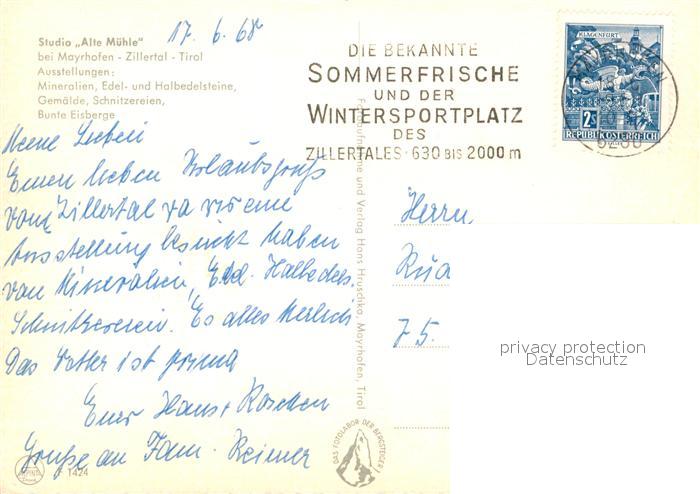 17.6.68
Studio „Alte Mühle"
bei Mayrhofen - Zillertal - Tirol
Ausstellungen:
Mineralien, Edel- und Halbedelsteine,
Gemälde, Schnitzereien,
Bunte Eisberge
DIE BEKANNTE
SOMMERFRISCHE
UND DER
WINTERSPORTPLATZ
DES
ZILLERTALES · 630 BIS 2000 m
KLAGENFURT
2S
REPUBLIK ÖSTERREICH
Meine Lieben
Einen lieben Urlaubsgruß
vom Zillertal wo wir eine
Ausstellung besucht haben
von Mineralien, Edel. Halbedels.
Schnitzereien. Es alles herlich
Das Wetter ist prima
Euer Hans +
Grüße an Fam. Reimer
Herrn
75.
Fotoaufnahme und Verlag Hans Hruschka, Mayrhofen, Tirol
DAS FOTOLABOR DER BERGSTEIGER
F 1424
privacy protection
Datenschutz